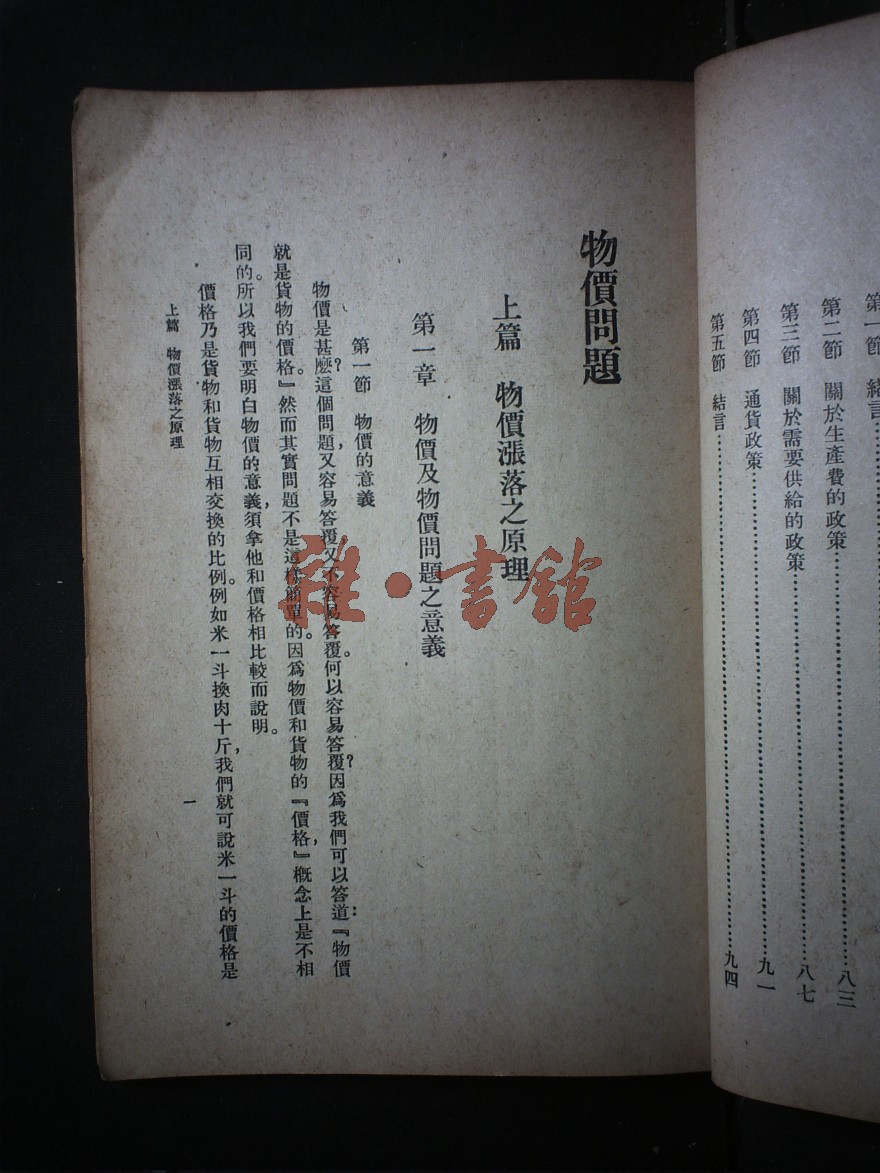 第一節 結言
第二節 關於生產費的政策……八三
第三節 關於需要供給的政策……八七
第四節 通貨政策……九一
第五節 結言……九四
物價問題
上篇 物價漲落之原理
第一章 物價及物價問題之意義
第一節 物價的意義
物價是甚麽？這個問題，又容易答覆又不容易答覆。何以容易答覆？因爲我們可以答道：『物價
就是貨物的價格。』然而其實問題不是這樣簡單的。因爲物價和貨物的『價格』，概念上是不相
同的。所以我們要明白物價的意義，須拿他和價格相比較而說明。
價格乃是貨物和貨物互相交換的比例。例如米一斗換肉十斤，我們就可說米一斗的價格是
上篇 物價漲落之原理
一
雜·書館